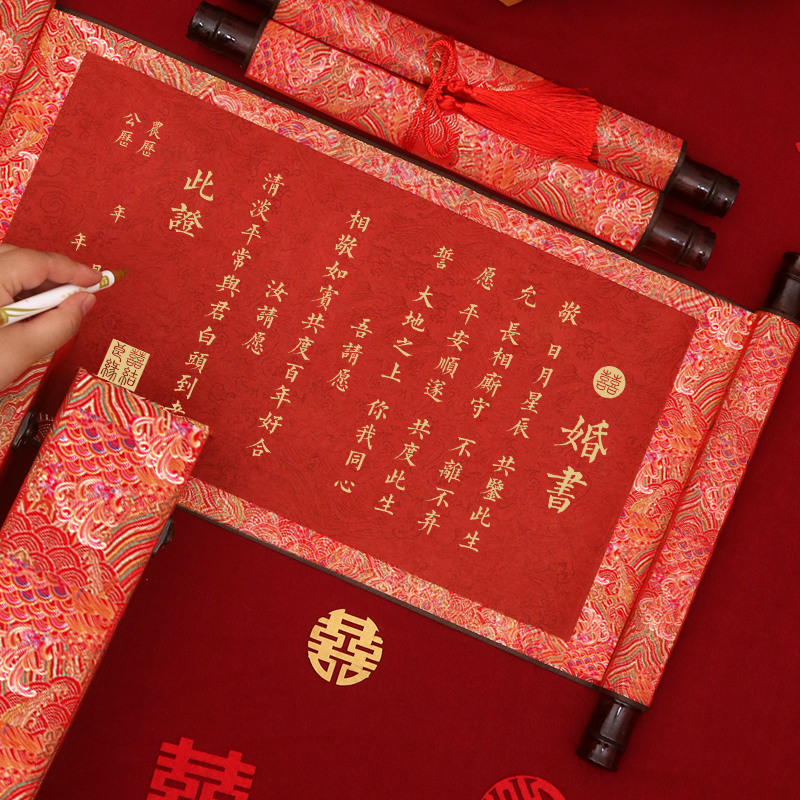 囍
婚書
敬 日月星辰 共鑒此生
允 長相廝守 不離不弃
愿 平安順遂 共度此生
誓 大地之上 你我同心
吾請愿
相敬如賓共度百年好合
汝請愿
清淡平常與君白頭到
此證
農歷 年
公歷 年
囍結良緣
囍
囍